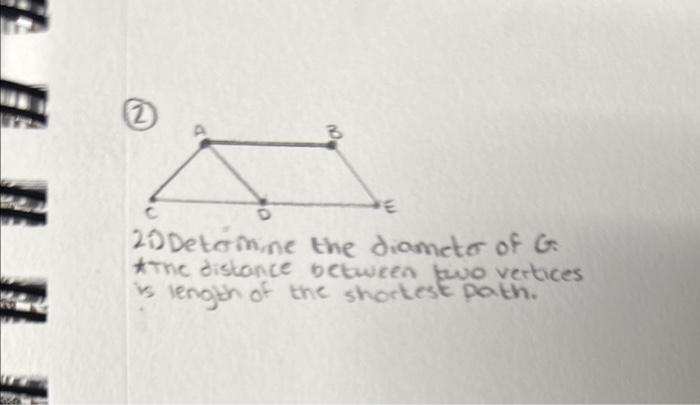 ②
A B
C D E
2i) Determine the diameter of G
*The distance between two vertices
is length of the shortest path.